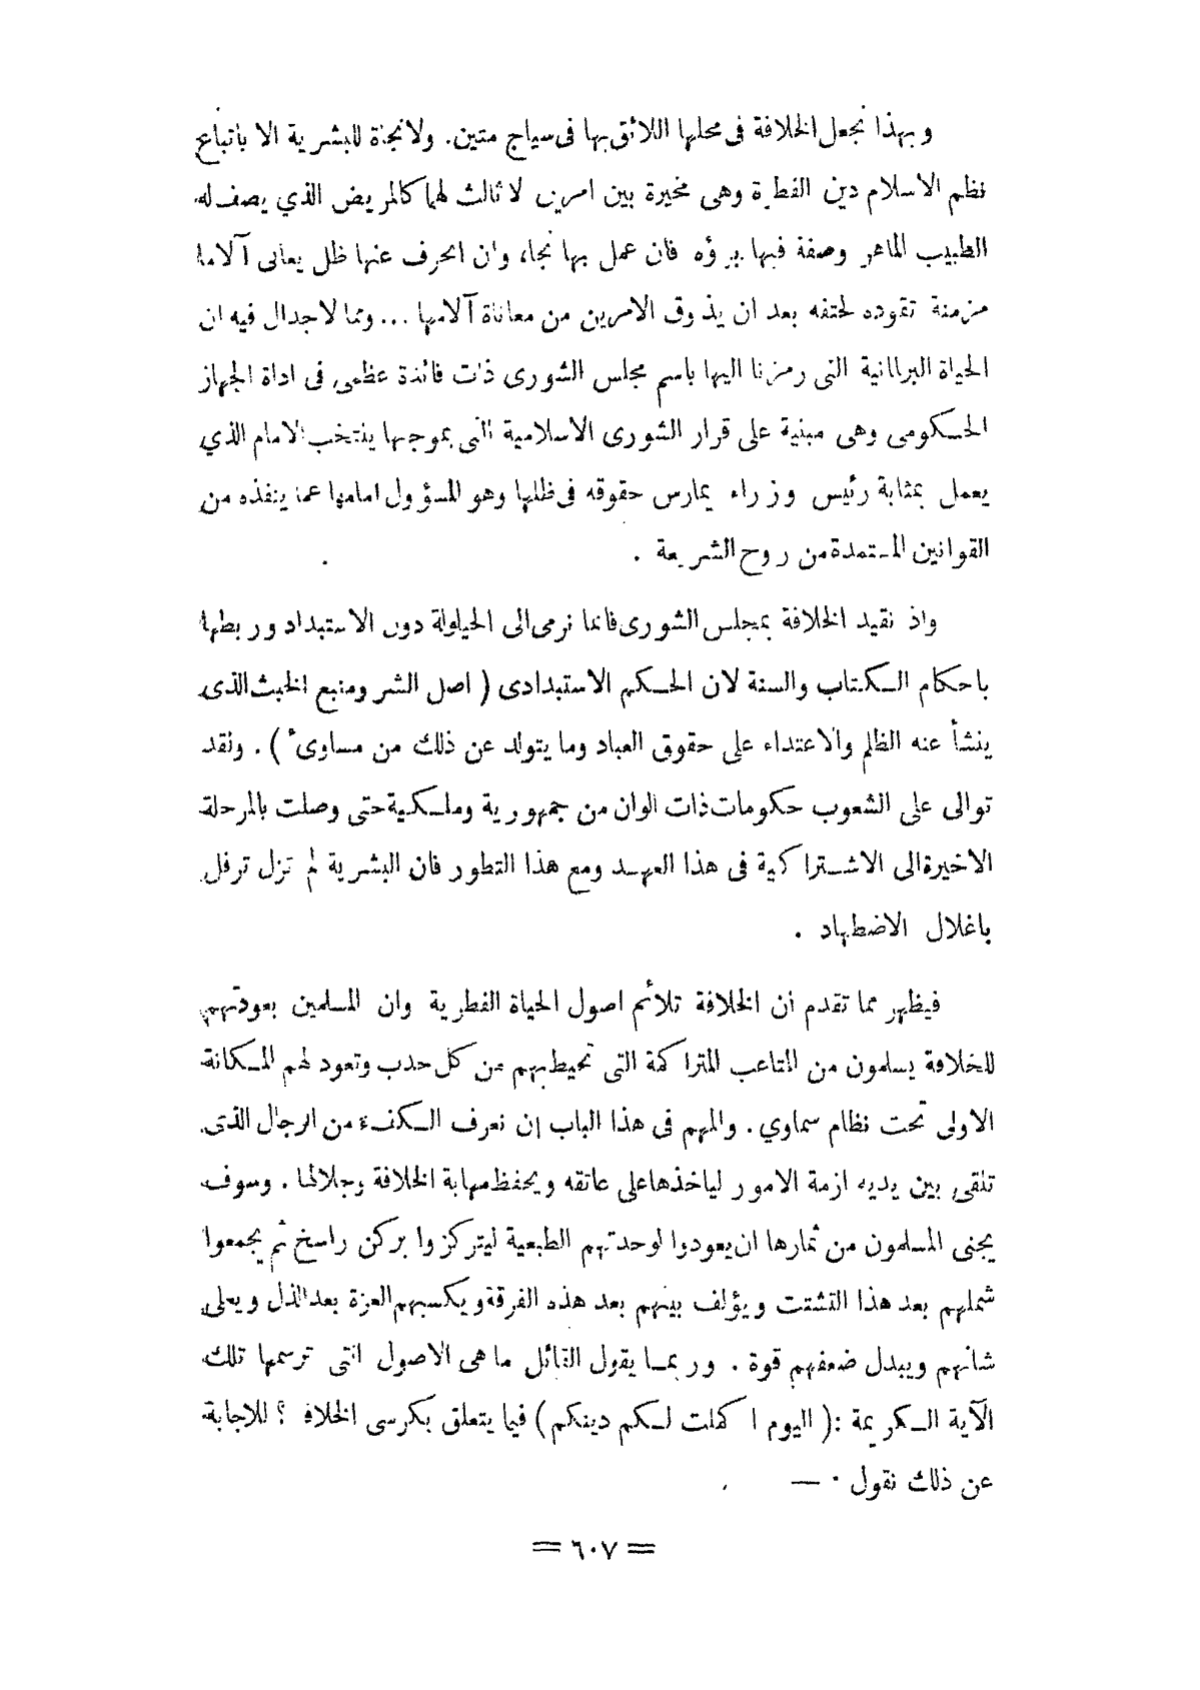 وبهذا نجعل الخلافة فى محلها اللائق بها فى سياج متين. ولا نجاة للبشرية الا باتباع
نظم الاسلام دين الفطرة وهى مخيرة بين امرين لا ثالث لهما كالمريض الذي يصف له
الطبيب الماهر وصفة فيها برؤه فان عمل بها نجا، وان انحرف عنها ظل يعانى آلاما
مزمنة تقوده لحتفه بعد ان يذوق الامرين من معاناة آلامها ... ومما لا جدال فيه ان
الحياة البرلمانية التى رمزنا اليها باسم مجلس الشورى ذات فائدة عظمى فى اداة الجهاز
الحكومى وهى مبنية على قرار الشورى الاسلامية التى بموجبها ينتخب الامام الذي
يعمل بمثابة رئيس وزراء يمارس حقوقه فى ظلها وهو المسؤول امامها عما ينفذه من
القوانين المستمدة من روح الشريعة .
واذ نقيد الخلافة بمجلس الشورى فانما نرمى الى الحيلولة دون الاستبداد وربطها
باحكام الكتاب والسنة لان الحكم الاستبدادى ( اصل الشر ومنبع الخبث الذى
ينشأ عنه الظلم والاعتداء على حقوق العباد وما يتولد عن ذلك من مساوىء ) . ولقد
توالى على الشعوب حكومات ذات الوان من جمهورية وملكية حتى وصلت بالمرحلة
الاخيرة الى الاشتراكية فى هذا العهد ومع هذا التطور فان البشرية لم تزل ترفل
باغلال الاضطهاد .
فيظهر مما تقدم ان الخلافة تلائم اصول الحياة الفطرية وان المسلمين بعودتهم
للخلافة يسلمون من المتاعب المتراكمة التى تحيط بهم من كل حدب وتعود لهم المكانة
الاولى تحت نظام سماوي . والمهم فى هذا الباب إن نعرف الكفء من الرجال الذى
تلقى بين يديه ازمة الامور لياخذها على عاتقه ويحفظ مهابة الخلافة وجلالها . وسوف
يجنى المسلمون من ثمارها ان يعودوا لوحدتهم الطبعية ليتركزوا بركن راسخ ثم يجمعوا
شملهم بعد هذا التشتت ويؤلف بينهم بعد هذه الفرقة ويكسبهم العزة بعد الذل ويعلى
شانهم ويبدل ضعفهم قوة . وربما يقول القائل ما هى الاصول التى ترسمها تلك
الآية الكريمة :( اليوم اكملت لكم دينكم ) فيما يتعلق بكرسى الخلافة ؟ للاجابة
عن ذلك نقول . —
= ٦٠٧ =